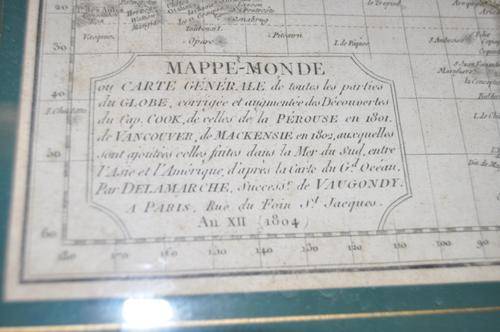 Pitcairn
I. de Pâques
Opare
MAPPE-MONDE
ou CARTE GÉNÉRALE de toutes les parties
du GLOBE, corrigée et augmentée des Découvertes
du Cap. COOK, de celles de la PÉROUSE en 1801.
de VANCOUVER, de MACKENSIE en 1802, auxquelles
sont ajoutées celles faites dans la Mer du Sud, entre
l'Asie et l'Amérique, d'après la Carte du Gd. Océan.
Par DELAMARCHE, Successr. de VAUGONDY.
A PARIS, Rue du Foin St. Jacques.
An XII (1804)
30
40
50
60
180 170 160 150 140 130 120 110 100 90